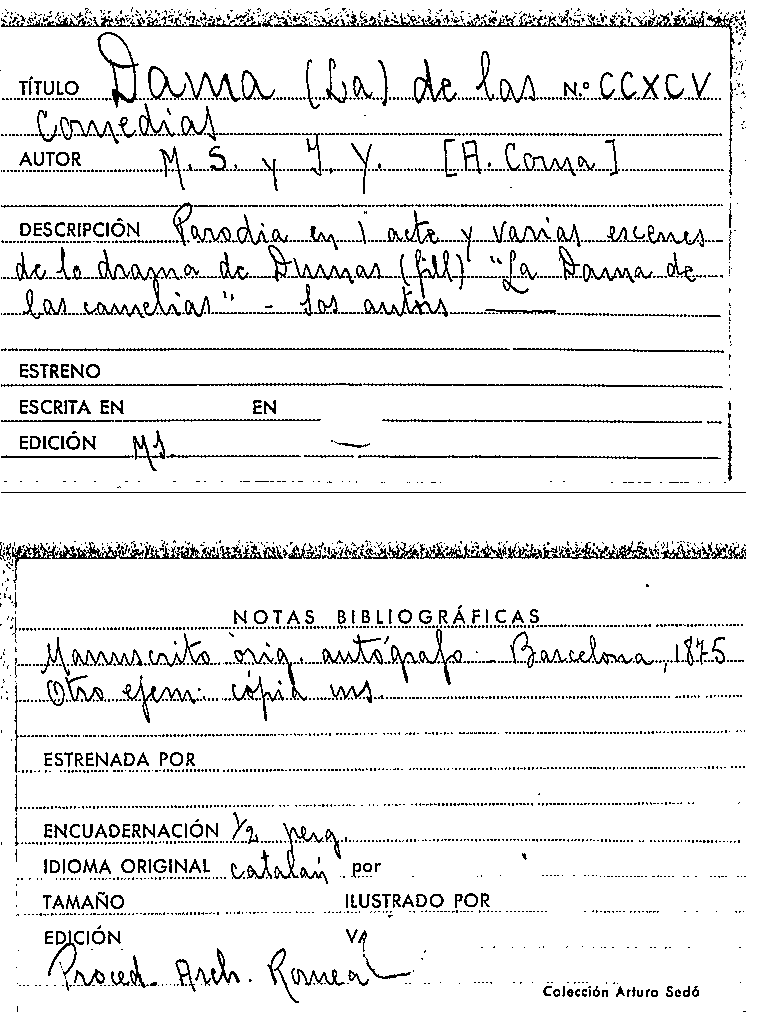 TÍTULO Dama (La) de las N.º CCXCV
Comedias
AUTOR M. S. y J. Y. [A. Coma]
DESCRIPCIÓN Parodia en 1 acte y varias escenes
de lo drama de Dumas (fill) "La Dama de
las camelias" - Los autors
ESTRENO
ESCRITA EN EN
EDICIÓN Ms.
NOTAS BIBLIOGRÁFICAS
Manuscrito orig. autógrafo. Barcelona, 1875
Otro ejem: cópia ms.
ESTRENADA POR
ENCUADERNACIÓN 1/2 perg.
IDIOMA ORIGINAL catalán por
TAMAÑO ILUSTRADO POR
EDICIÓN
Proced. Arch. Romea
Colección Arturo Sedó